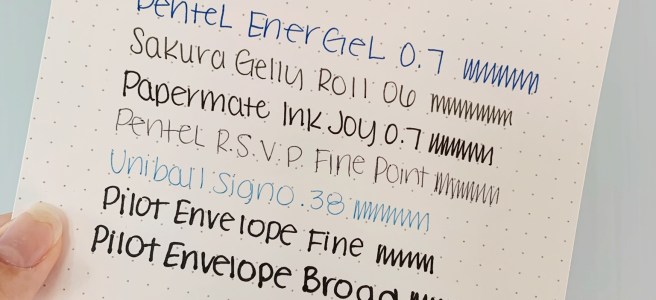 Pentel EnerGel 0.7
Sakura Gelly Roll 06
Papermate InkJoy 0.7
Pentel R.S.V.P. Fine Point
Uniball Signo .38
Pilot Envelope Fine
Pilot Envelope Broad